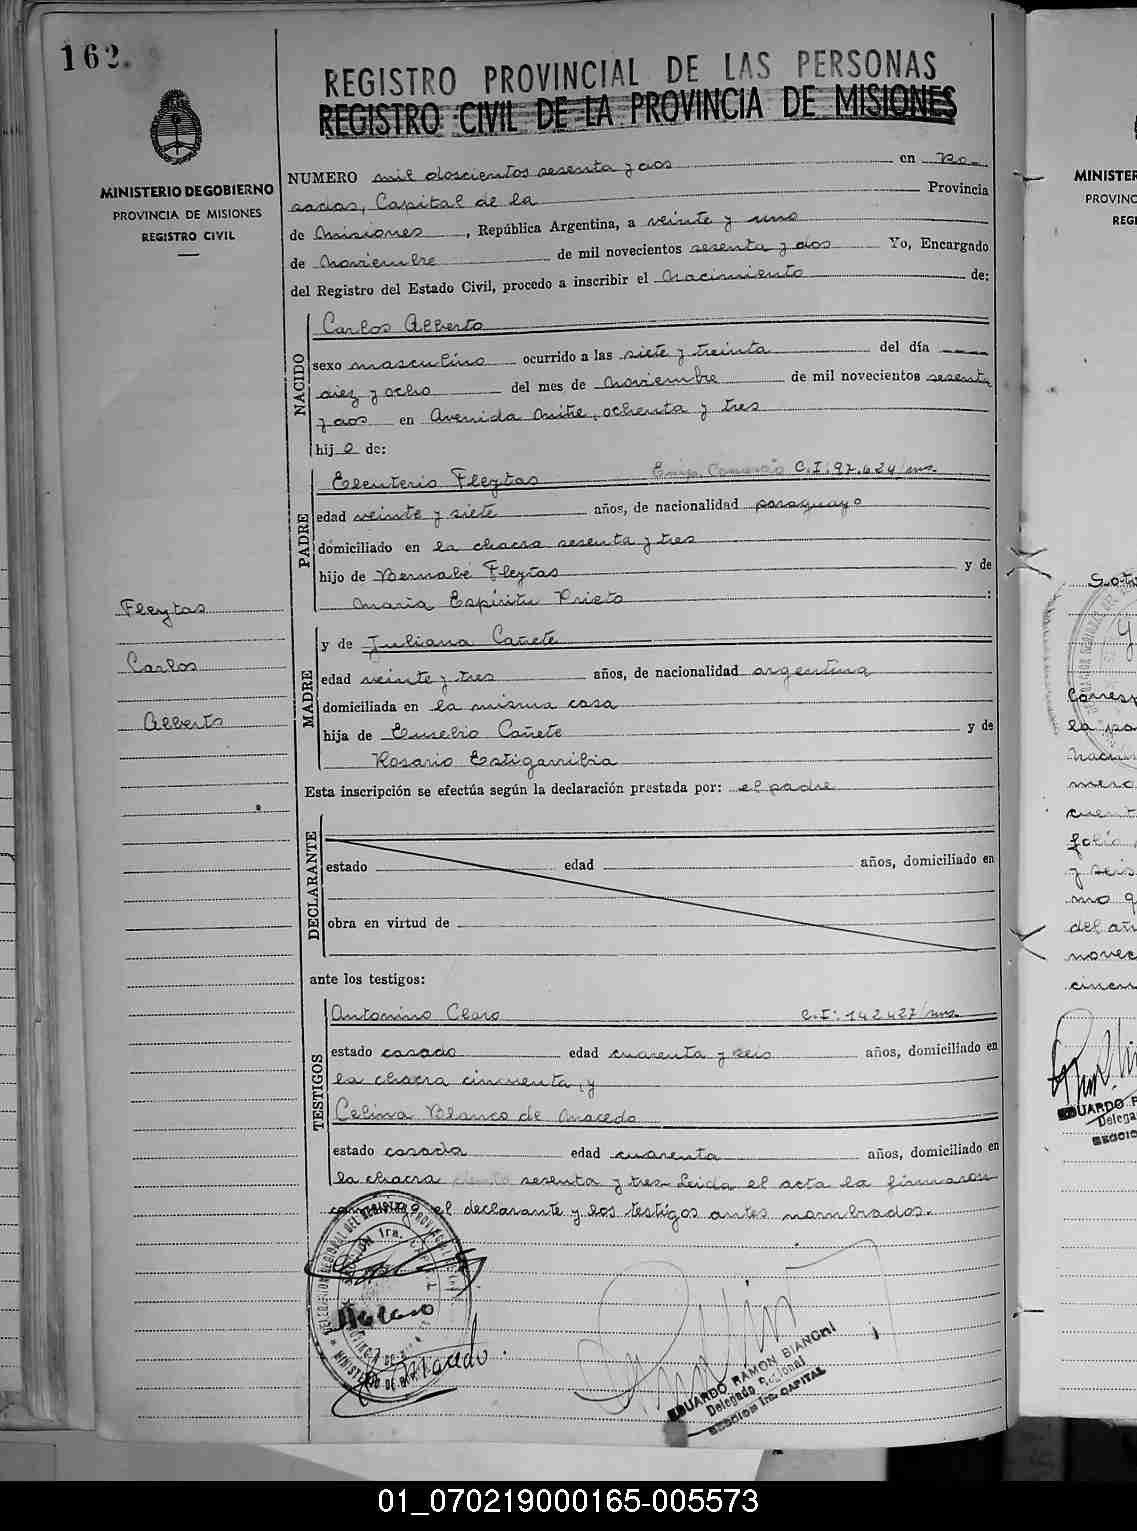 162.
MINISTERIO DE GOBIERNO
PROVINCIA DE MISIONES
REGISTRO CIVIL
REGISTRO PROVINCIAL DE LAS PERSONAS
REGISTRO CIVIL DE LA PROVINCIA DE MISIONES
NUMERO mil doscientos sesenta y dos en Po-
sadas, Capital de la Provincia
de Misiones, República Argentina, a veinte y uno
de Noviembre de mil novecientos sesenta y dos Yo, Encargado
del Registro del Estado Civil, procedo a inscribir el Nacimiento de:
NACIDO
Carlos Alberto
sexo masculino ocurrido a las siete y treinta del día
diez y ocho del mes de Noviembre de mil novecientos sesenta
y dos en Avenida Mitre, ochenta y tres
hijo de:
PADRE
Eleuterio Fleytas C.I: 97.624/mns.
edad veinte y siete años, de nacionalidad paraguayo
domiciliado en la chacra sesenta y tres
hijo de Bernabé Fleytas y de
María Espíritu Prieto :
MADRE
y de Juliana Cañete
edad veinte y tres años, de nacionalidad argentina
domiciliada en la misma casa
hija de Eusebio Cañete y de
Rosario Estigarribia
Esta inscripción se efectúa según la declaración prestada por: el padre
DECLARANTE
estado edad años, domiciliado en
obra en virtud de
ante los testigos:
TESTIGOS
Antonino Claro C.I: 142427/mns.
estado casado edad cuarenta y seis años, domiciliado en
la chacra cincuenta, y
Celina Blanco de Macedo
estado casada edad cuarenta años, domiciliado en
la chacra sesenta y tres Leida el acta la firmaron
conmigo el declarante y los testigos antes nombrados.
Fleytas
Carlos
Alberto
Macedo
EDUARDO RAMON BIANCHI
Delegado Regional
SECCION 1ra. CAPITAL
01_070219000165-005573